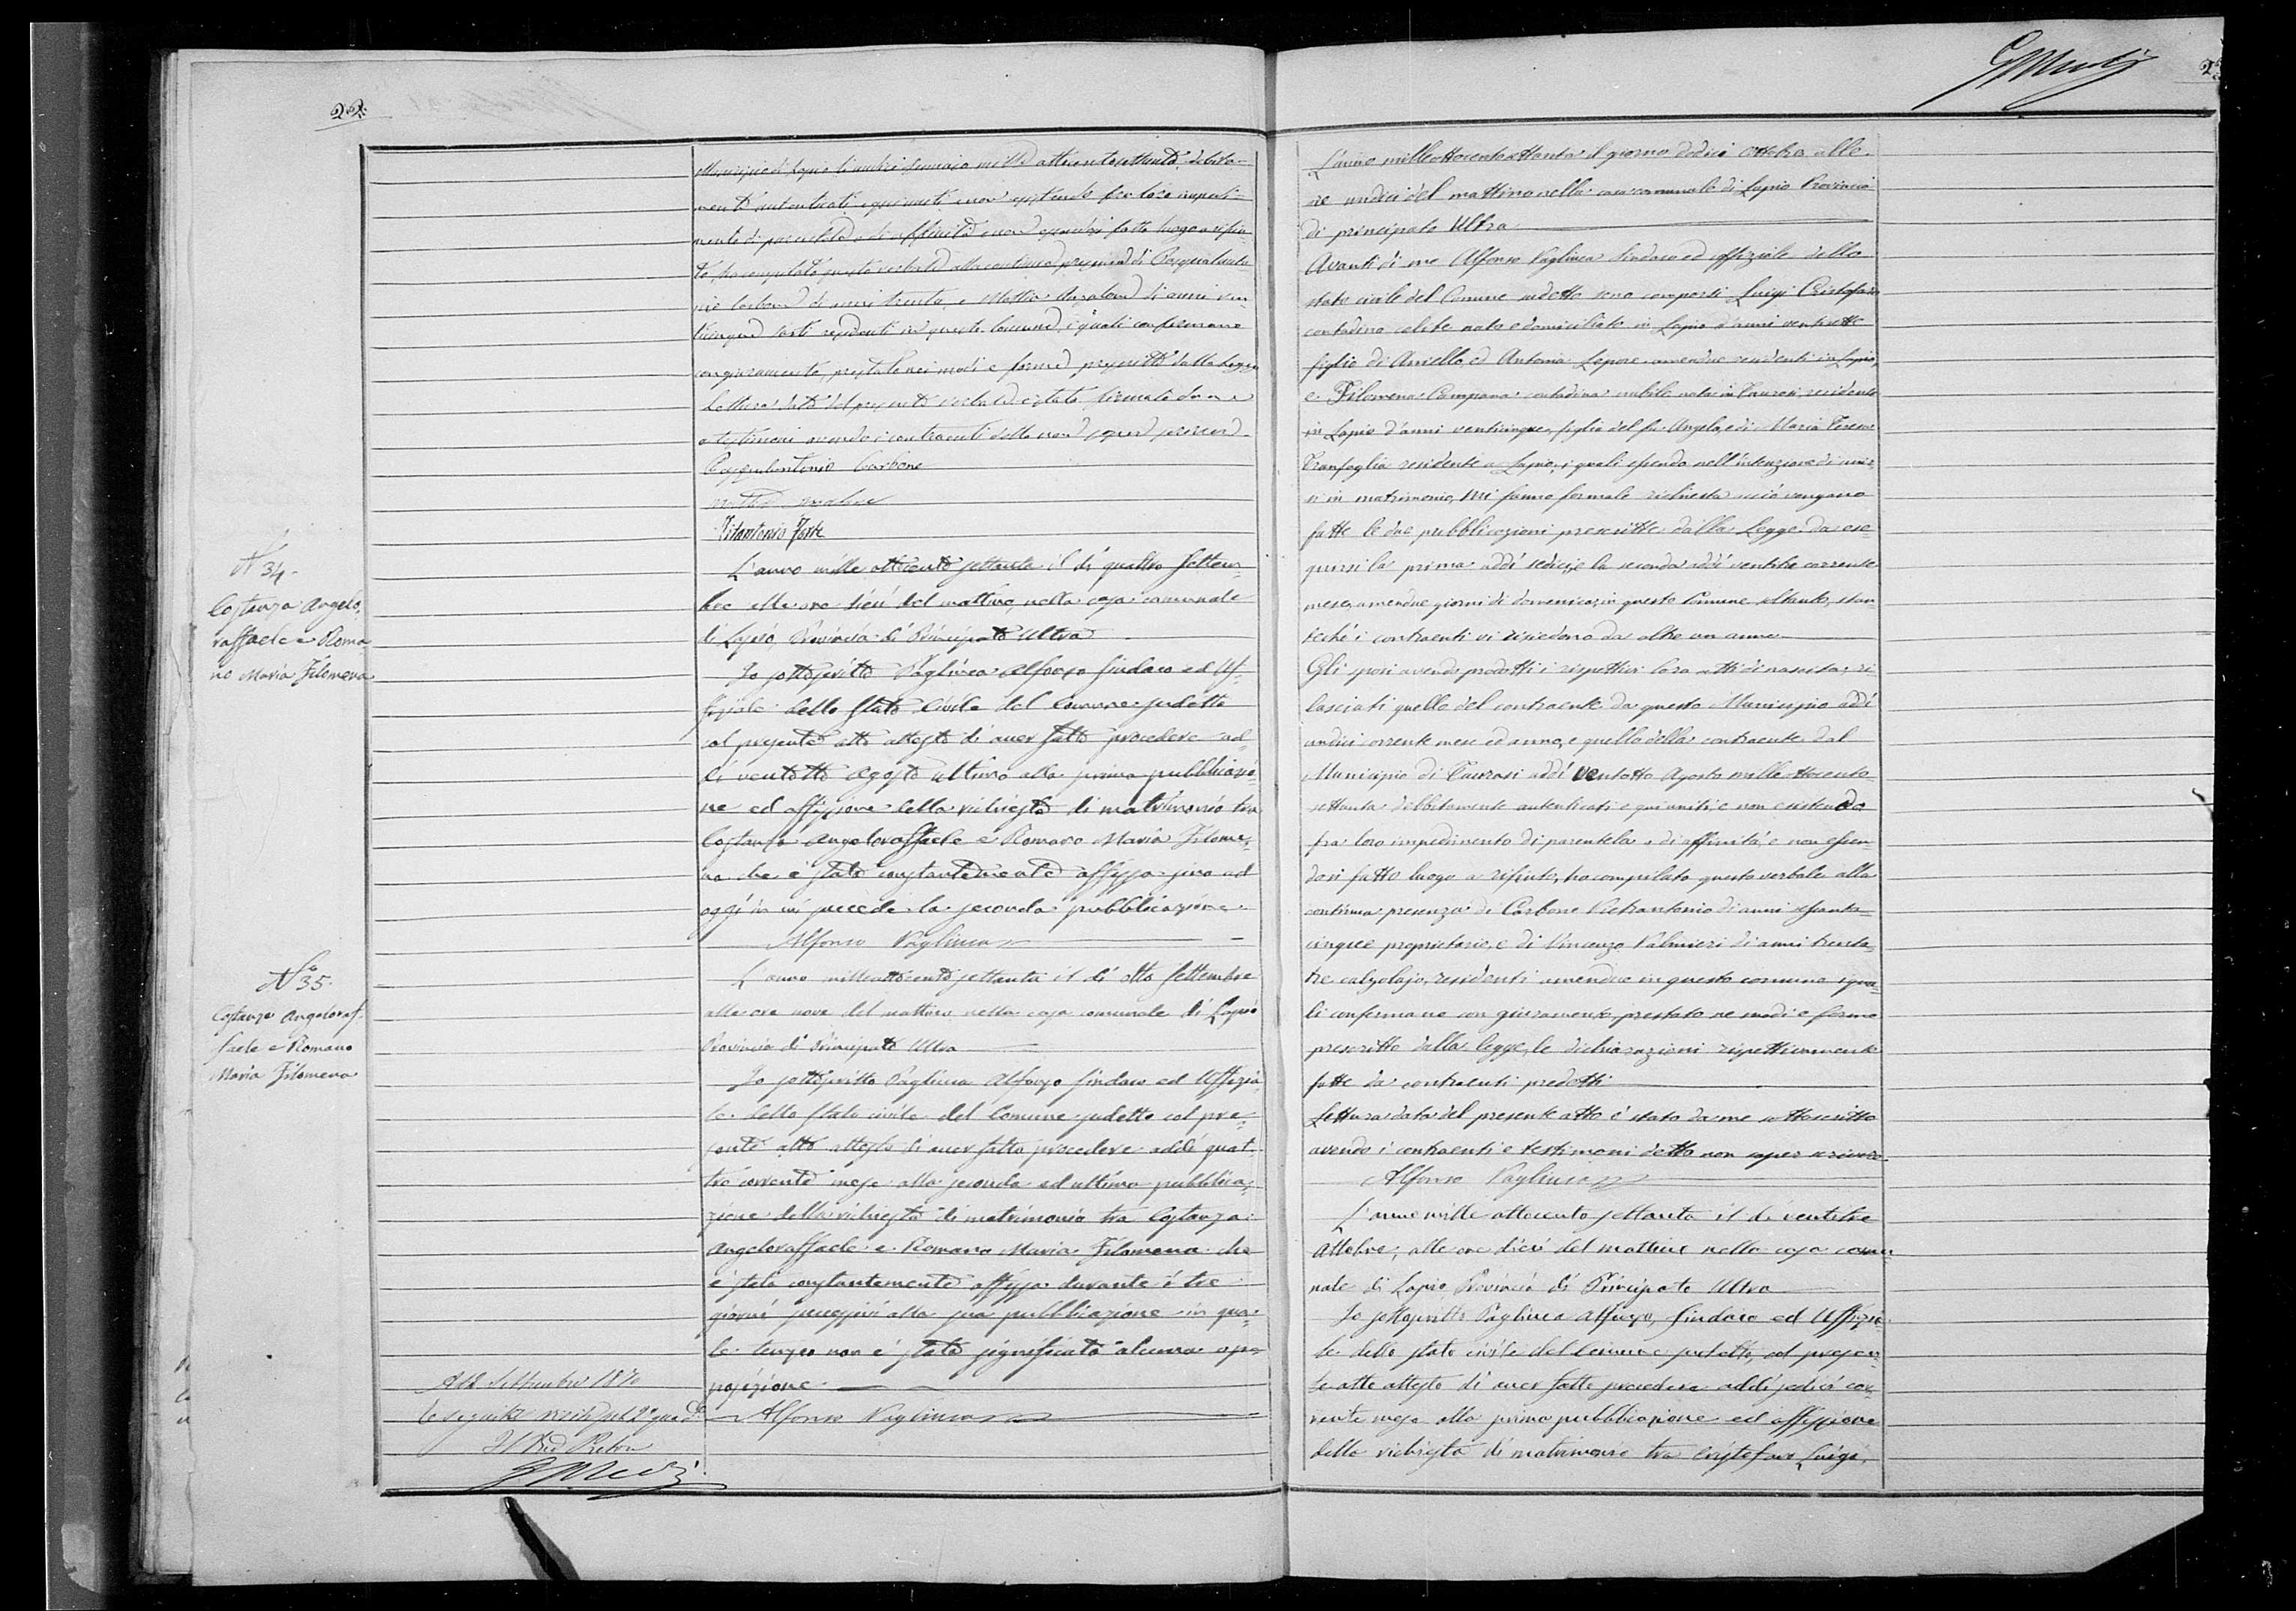 22
Municipio di Lapio
mente autenticati e qui uniti e non esistendo fra loro impedi-
mento di parentela o di affinità e non essendosi fatto luogo a rifiu-
to, ho compilato questo verbale alla continua presenza di Pasqualanto
nio Carbone di anni trenta, e Mattia Anzalone di anni ven
testi residenti in questo Comune, i quali confermano
con giuramento, prestato nei modi e forme prescritte dalla legge
Lettura data del presente verbale è stato firmato da me
e testimoni avendo i contraenti detto non saper scrivere
Pasqualantonio Carbone
Vitantonio Forte
N 34
Costanza Angelo
raffaele e Roma
no Maria Filomena
L'anno mille ottocento settanta il dì quattro Settem-
bre alle ore dieci del mattino, nella casa comunale
di Lapio, Provincia di Principato Ultra
Io sottoscritto Pagliuca Alfonso Sindaco ed Uf-
fiziale dello Stato Civile del Comune sudetto
col presente atto attesto di aver fatto procedere ad-
dì ventotto Agosto ultimo alla prima pubblicazio-
ne ed affissione della richiesta di matrimonio tra
Costanza Angeloraffaele e Romano Maria Filome-
na che è stata constantemente affissa sino ad
oggi in cui succede la seconda pubblicazione
Alfonso Pagliuca
N° 35
Costanza Angeloraf
faele e Romano
Maria Filomena
L'anno milleottocento settanta il dì otto Settembre
alle ore nove del mattino nella casa comunale di Lapio
Provincia di Principato Ultra
Io sottoscritto Pagliuca Alfonso Sindaco ed Uffizia-
le dello stato civile del Comune sudetto col pre-
sente atto attesto di aver fatto procedere addì quat-
tro corrente mese alla seconda ed ultima pubblica-
zione della richiesta di matrimonio tra Costanza
Angeloraffaele e Romano Maria Filomena che
è stata constantemente affissa durante i tre
giorni successivi alla sua pubblicazione in qua-
le tempo non è stata significata alcuna op-
posizione
Alfonso Pagliuca
A 12 Settembre 1870
Il
L'anno milleottocentosettanta il giorno dodici Ottobre alle
ore undici del mattino nella casa comunale di Lapio Provincia
di principato Ultra
Avanti di me Alfonso Pagliuca Sindaco ed uffiziale dello
stato civile del Comune sudetto sono comparsi Luigi Cristofaro
contadino celibe nato e domiciliato in Lapio d'anni ventisette
figlio di Aniello, ed Antonia Lepore amendue residenti in Lapio,
e Filomena Campana contadina nubile nata in Taurasi, residente
in Lapio d'anni venticinque, figlia del fu Angelo, e di Maria Teresa
Tranfaglia residente a Lapio, i quali essendo nell'intenzione di unir-
si in matrimonio, mi fanno formale richiesta acciò vengano
fatte le due pubblicazioni prescritte dalla Legge da ese-
guirsi la prima addì sedici, e la seconda addì ventitre corrente
mese, amendue giorni di domenica, in questo Comune soltanto, stan-
teché i contraenti vi risiedono da oltre un anno
Gli sposi avendo prodotti i rispettivi loro atti di nascita, ri
lasciati quello del contraente da questo Municipio addì
undici corrente mese ed anno, e quello della contraente dal
Municipio di Taurasi addì ventotto Agosto mille ottocento
settanta debbitamente autenticati e qui uniti, e non esistendo
fra loro impedimento di parentela o di affinità, e non essen-
dosi fatto luogo a rifiuto, ho compilato questo verbale alla
continua presenza di Carbone Pietrantonio di anni sessanta-
cinque proprietario, e di Vincenzo Palmieri di anni trenta-
tre calzolajo, residenti amendue in questo comune i qua-
li confermano con giuramento, prestato ne modi e forme
prescritto dalla legge, le dichiarazioni rispettivamente
fatte da contraenti predetti
Lettura data del presente atto è stato da me sottoscritto
avendo i contraenti e testimoni detto non saper scrivere
Alfonso Pagliuca
L'anno mille ottocento settanta il dì ventitre
Ottobre, alle ore dieci del mattino nella casa comu
nale di Lapio Provincia di Principato Ultra
Io sottoscritto Pagliuca Alfonso, Sindaco ed Uffizia-
le dello stato civile del Comune sudetto, col presen-
te atto attesto di aver fatto procedere addì sedici cor-
rente mese alla prima pubblicazione ed affissione
della richiesta di matrimonio tra Cristofaro Luigi,